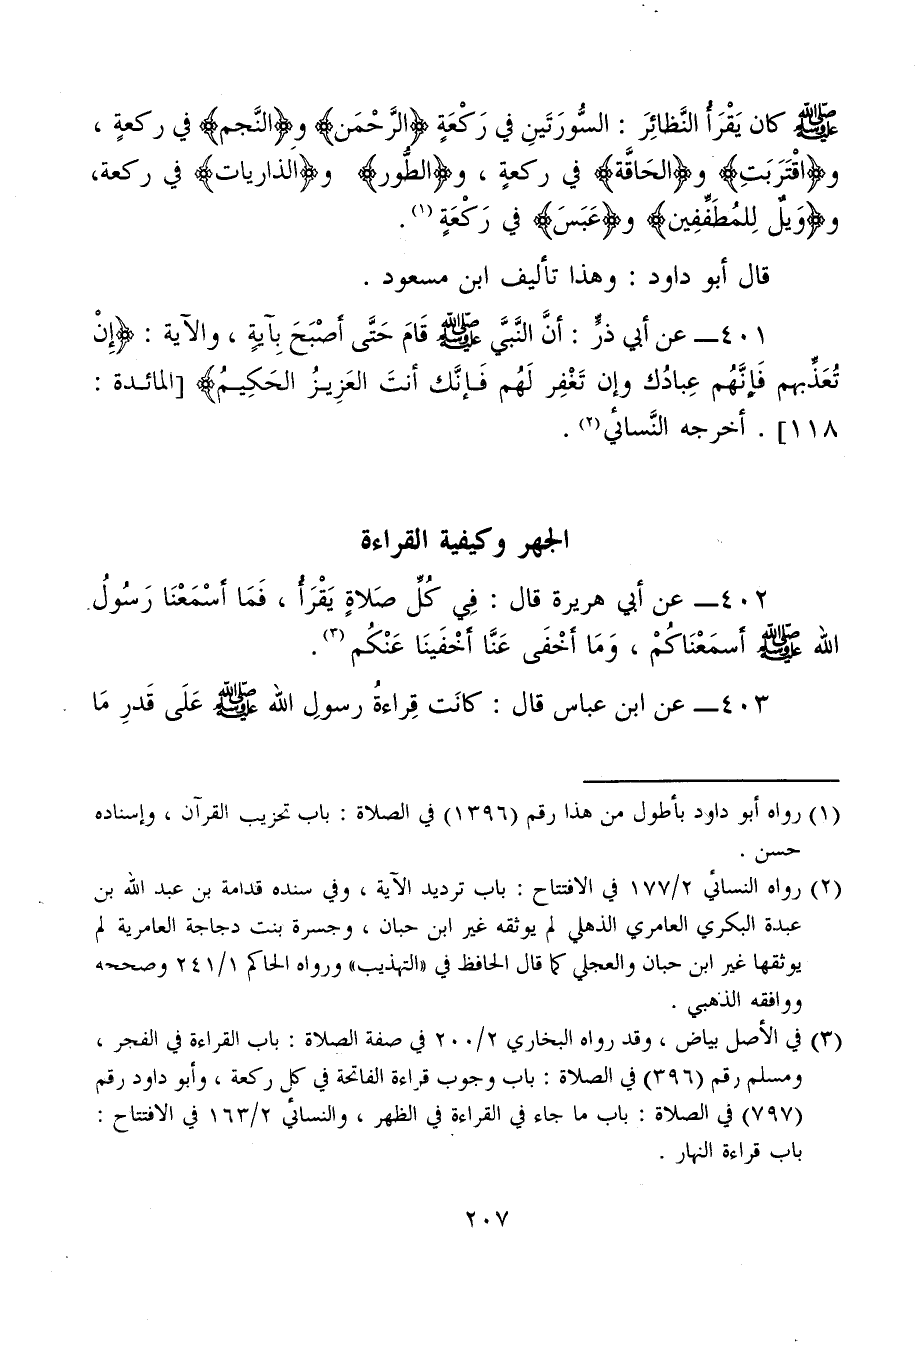 ﷺ كان يَقْرَأُ النَّظائِرَ : السُّورَتَينِ في رَكْعَةٍ ﴿الرَّحْمَن﴾ و﴿النَّجم﴾ في ركعةٍ ،
و﴿اقْتَرَبَتِ﴾ و﴿الحَاقَّة﴾ في ركعةٍ ، و﴿الطُّور﴾ و﴿الذاريات﴾ في ركعة،
و﴿وَيلٌ لِلمُطَفِّفِين﴾ و﴿عَبَسَ﴾ في رَكْعَةٍ (١).
قال أبو داود : وهذا تأليف ابن مسعود .
٤٠١ـ عن أبي ذرٍّ : أنَّ النَّبيَّ ﷺ قَامَ حَتَّى أصْبَحَ بِآيةٍ ، والآية : ﴿إنْ
تُعَذِّبهم فَإنَّهُم عِبادُك وإن تَغْفِر لَهُم فَإنَّك أنتَ العَزِيزُ الحَكِيمُ﴾ [المائدة :
١١٨] . أخرجه النَّسائي(٢) .
الجهر وكيفية القراءة
٤٠٢ـ عن أبي هريرة قال : فِي كُلِّ صَلاةٍ يَقْرَأُ ، فَمَا أسْمَعْنَا رَسُولُ
الله ﷺ أسمَعْنَاكُمْ ، وَمَا أخْفَى عَنَّا أخْفَينَا عَنْكُم (٣).
٤٠٣ـ عن ابن عباس قال : كانَت قِراءةُ رسولِ الله ﷺ عَلَى قَدرِ مَا
(١) رواه أبو داود بأطول من هذا رقم (١٣٩٦) في الصلاة : باب تحزيب القرآن ، وإسناده
حسن .
(٢) رواه النسائي ١٧٧/٢ في الافتتاح : باب ترديد الآية ، وفي سنده قدامة بن عبد الله بن
عبدة البكري العامري الذهلي لم يوثقه غير ابن حبان ، وجسرة بنت دجاجة العامرية لم
يوثقها غير ابن حبان والعجلي كما قال الحافظ في «التهذيب» ورواه الحاكم ٢٤١/١ وصححه
ووافقه الذهبي .
(٣) في الأصل بياض ، وقد رواه البخاري ٢٠٠/٢ في صفة الصلاة : باب القراءة في الفجر ،
ومسلم رقم (٣٩٦) في الصلاة : باب وجوب قراءة الفاتحة في كل ركعة ، وأبو داود رقم
(٧٩٧) في الصلاة : باب ما جاء في القراءة في الظهر ، والنسائي ١٦٣/٢ في الافتتاح :
باب قراءة النهار .
٢٠٧